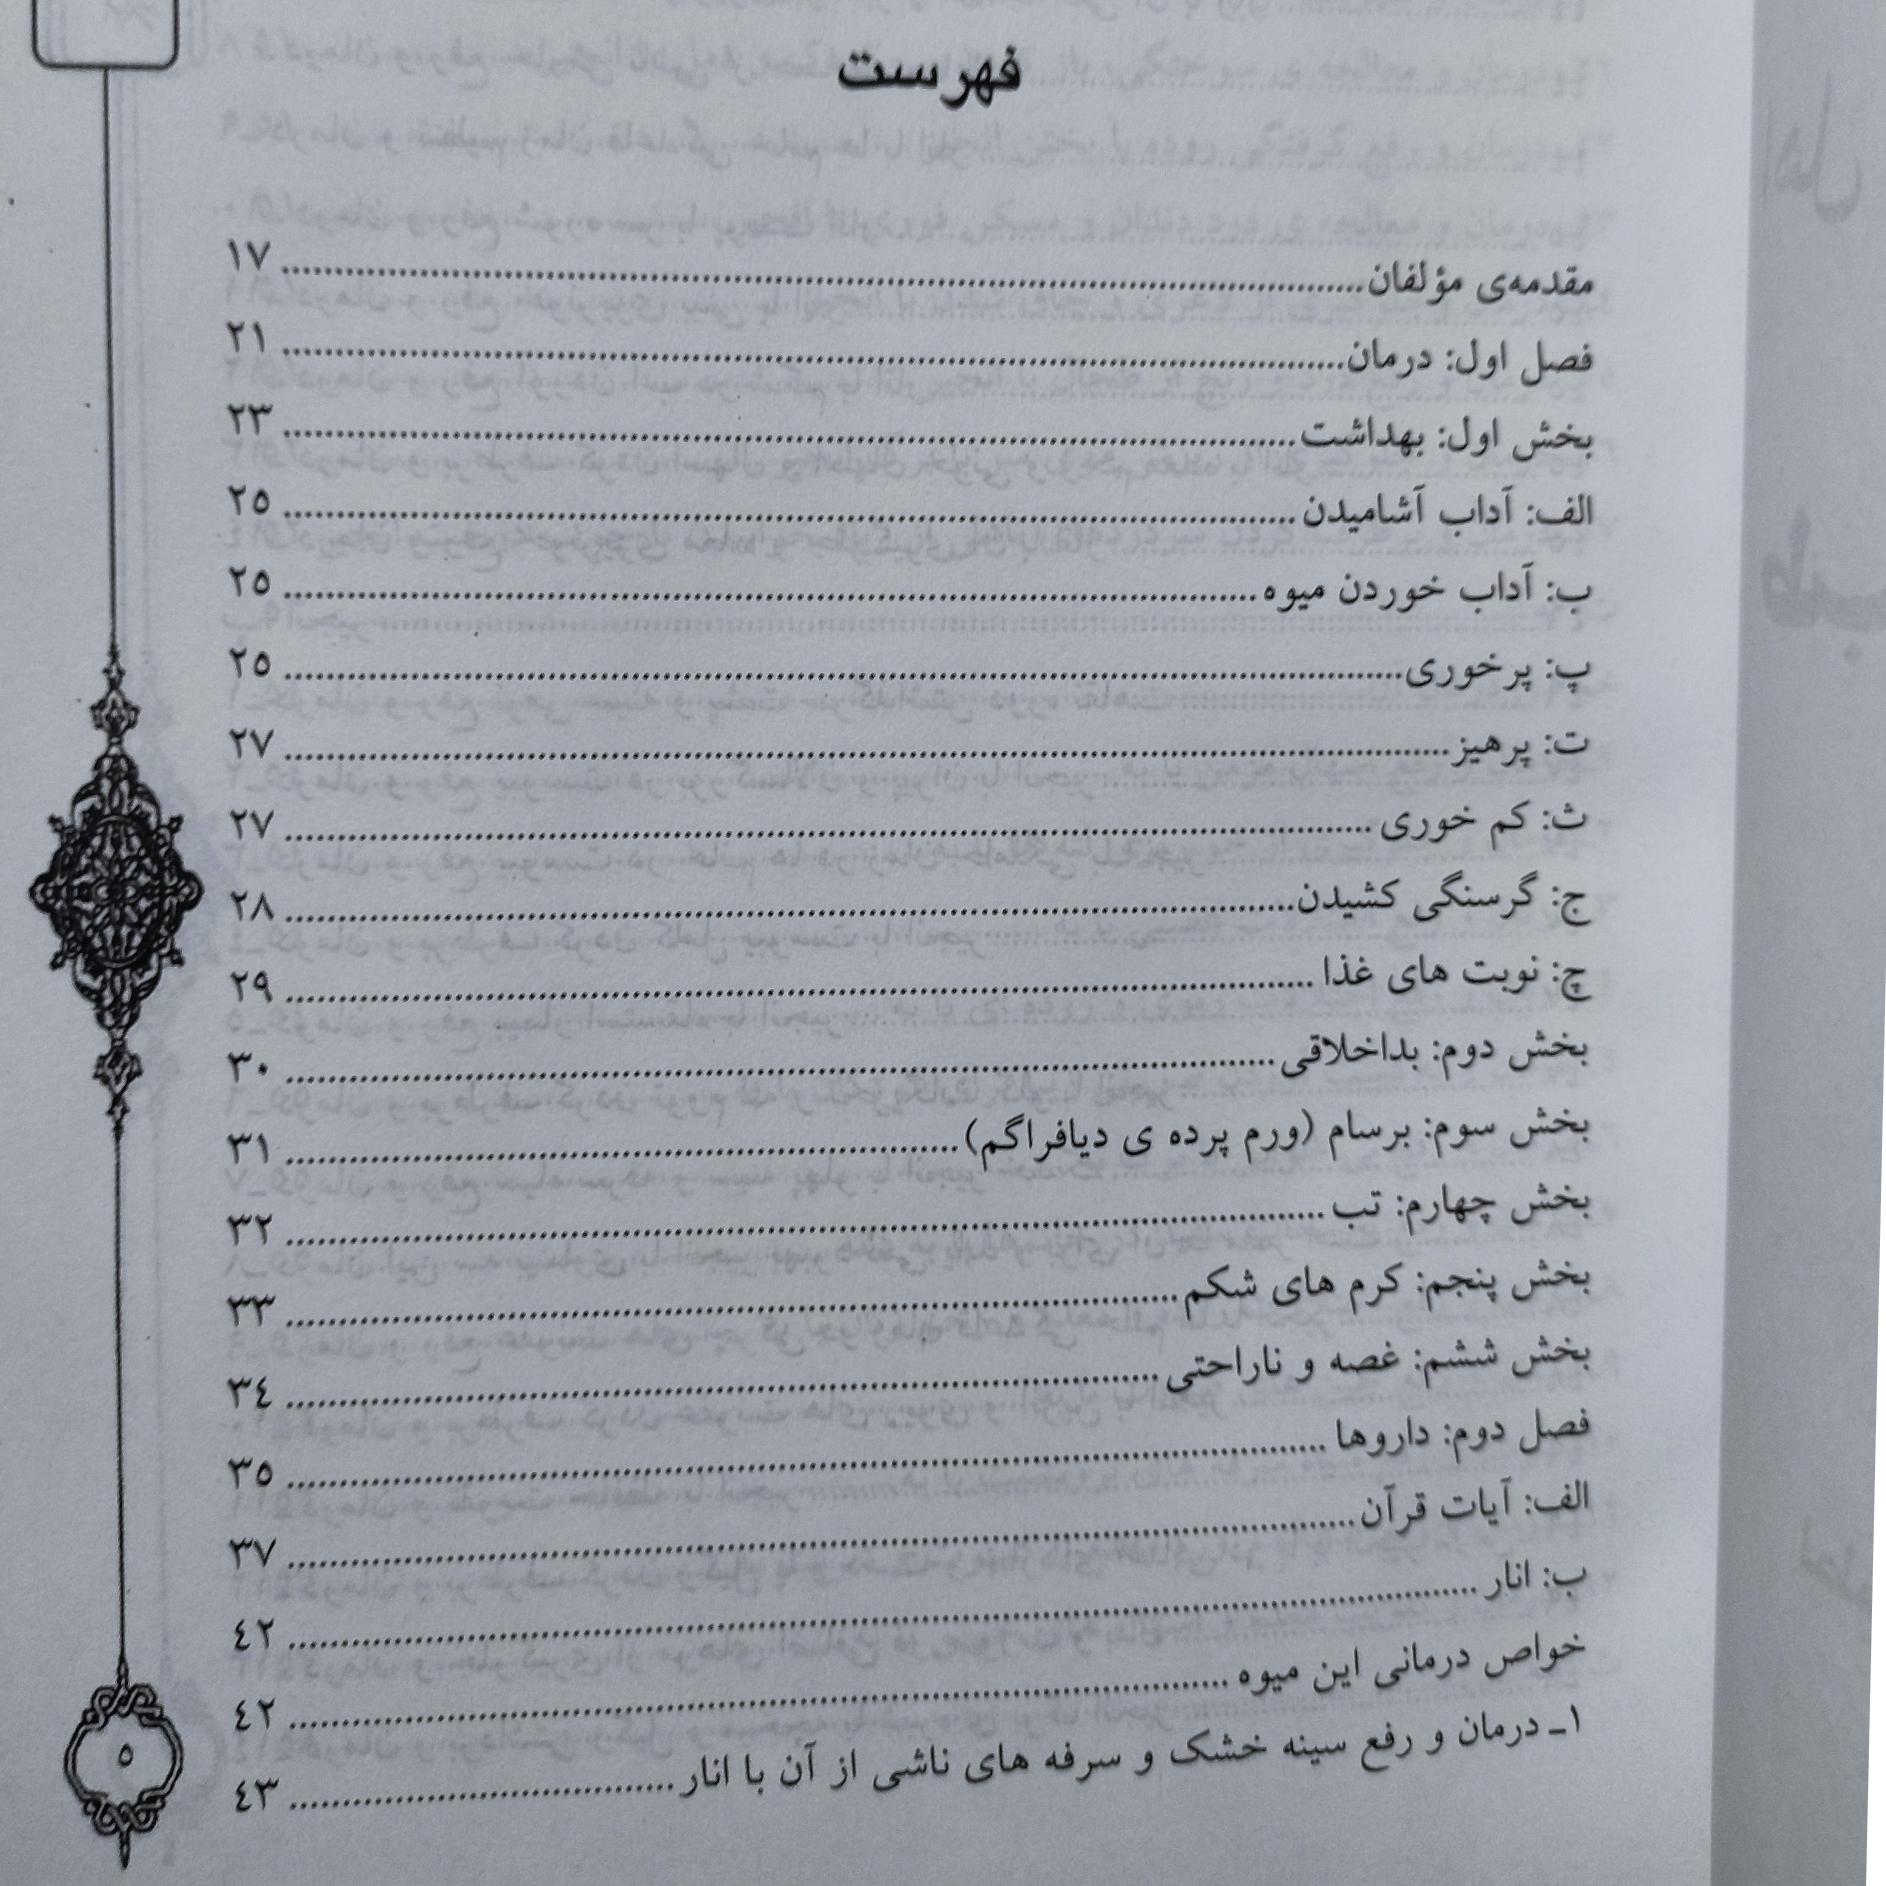 فهرست
مقدمه‌ی مؤلفان........................................ ١٧
فصل اول: درمان........................................ ٢١
بخش اول: بهداشت........................................ ٢٣
الف: آداب آشامیدن........................................ ٢٥
ب: آداب خوردن میوه........................................ ٢٥
پ: پرخوری........................................ ٢٥
ت: پرهیز........................................ ٢٧
ث: کم خوری........................................ ٢٧
ج: گرسنگی کشیدن........................................ ٢٨
چ: نوبت های غذا........................................ ٢٩
بخش دوم: بداخلاقی........................................ ٣٠
بخش سوم: برسام (ورم پرده ی دیافراگم)........................................ ٣١
بخش چهارم: تب........................................ ٣٢
بخش پنجم: کرم های شکم........................................ ٣٣
بخش ششم: غصه و ناراحتی........................................ ٣٤
فصل دوم: داروها........................................ ٣٥
الف: آیات قرآن........................................ ٣٧
ب: انار........................................ ٤٢
خواص درمانی این میوه........................................ ٤٢
١ـ درمان و رفع سینه خشک و سرفه های ناشی از آن با انار........................................ ٤٣
٥